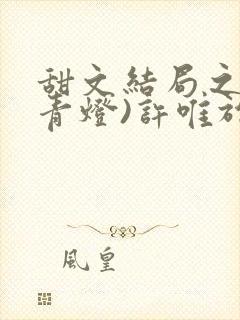 甜文結局之
青燈)許唯
風皇